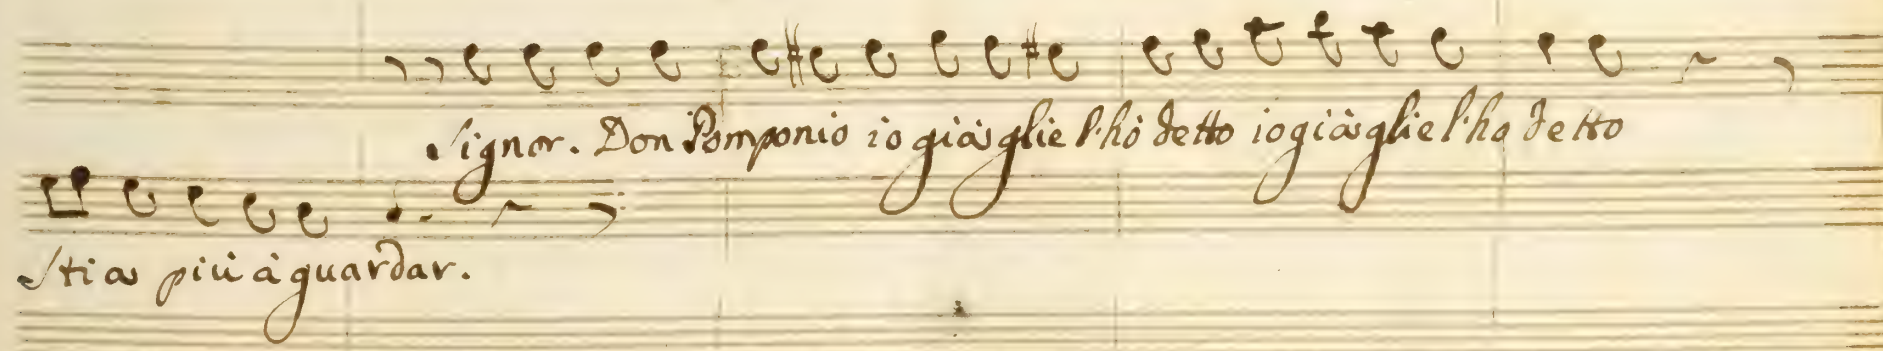 Signor. Don Pomponio io già glie l'hò detto io già glie l'ho detto
stia più à guardar.